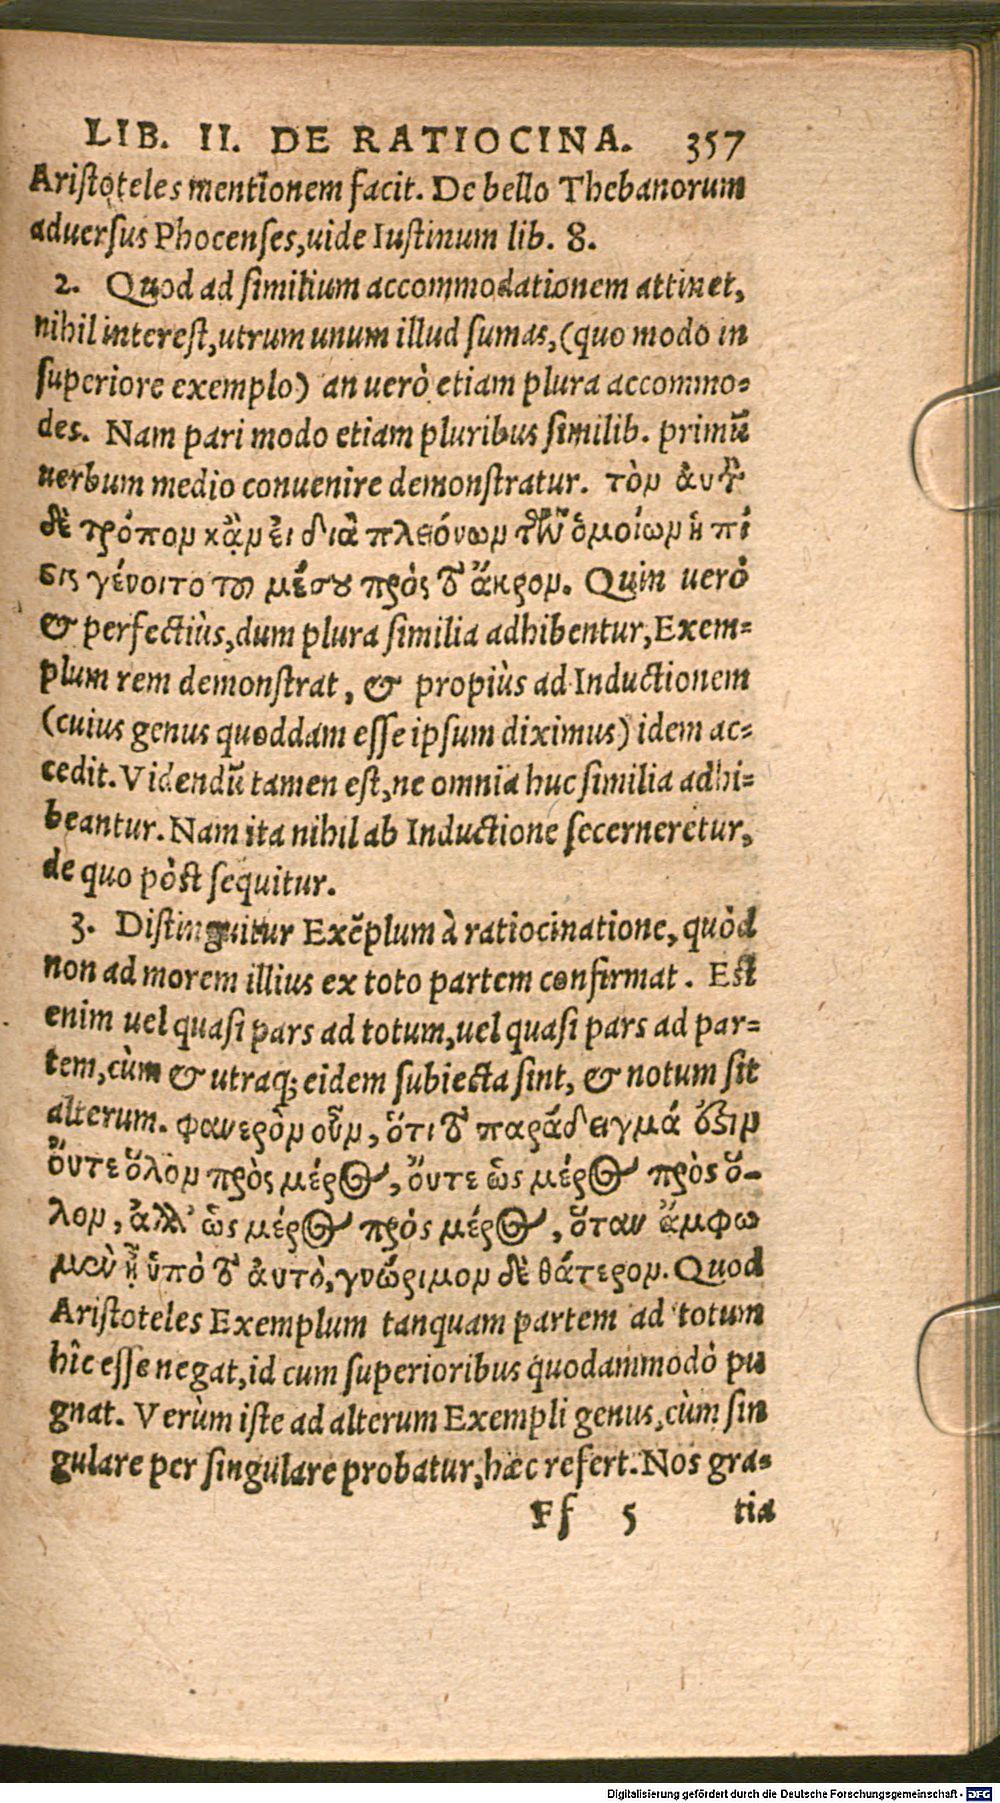 LIB. II. DE RATIOCINA. 357
Aristoteles mentionem facit. De bello Thebanorum
aduersus Phocenses, uide Iustinum lib. 8.
2. Quod ad similium accommodationem attinet,
nihil interest, utrum unum illud sumas, (quo modo in
superiore exemplo) an uerò etiam plura accommo=
des. Nam pari modo etiam pluribus similib. primū
uerbum medio conuenire demonstratur. τὸν ἀυτὸν
δὲ τρόπον κἂν εἰ διὰ πλειόνων τῶν ὁμοίων ἡ πί
στις γένοιτο τοῦ μέσου πρὸς τὸ ἄκρον. Quin uerò
& perfectiùs, dum plura similia adhibentur, Exem=
plum rem demonstrat, & propiùs ad Inductionem
(cuius genus quoddam esse ipsum diximus) idem ac=
cedit. Videndū tamen est, ne omnia huc similia adhi=
beantur. Nam ita nihil ab Inductione secerneretur,
de quo pòst sequitur.
3. Distinguitur Exēplum à ratiocinatione, quòd
non ad morem illius ex toto partem confirmat. Est
enim uel quasi pars ad totum, uel quasi pars ad par=
tem, cùm & utraq; eidem subiecta sint, & notum sit
alterum. φανερὸν οὖν, ὅτι τὸ παράδειγμά ἐστιν
ὄυτε ὅλον πρὸς μέρος, ὄυτε ὡς μέρος πρὸς ὅ-
λον, ἀλλ' ὡς μέρος πρὸς μέρος, ὅταν ἄμφω
μὲν ᾖ ὑπὸ τὸ ἀυτὸ, γνώριμον δὲ θάτερον. Quod
Aristoteles Exemplum tanquam partem ad totum
hîc esse negat, id cum superioribus quodammodò pu
gnat. Verùm iste ad alterum Exempli genus, cùm sin
gulare per singulare probatur, hæc refert. Nos gra=
Ff 5 tia
Digitalisierung gefördert durch die Deutsche Forschungsgemeinschaft - DFG